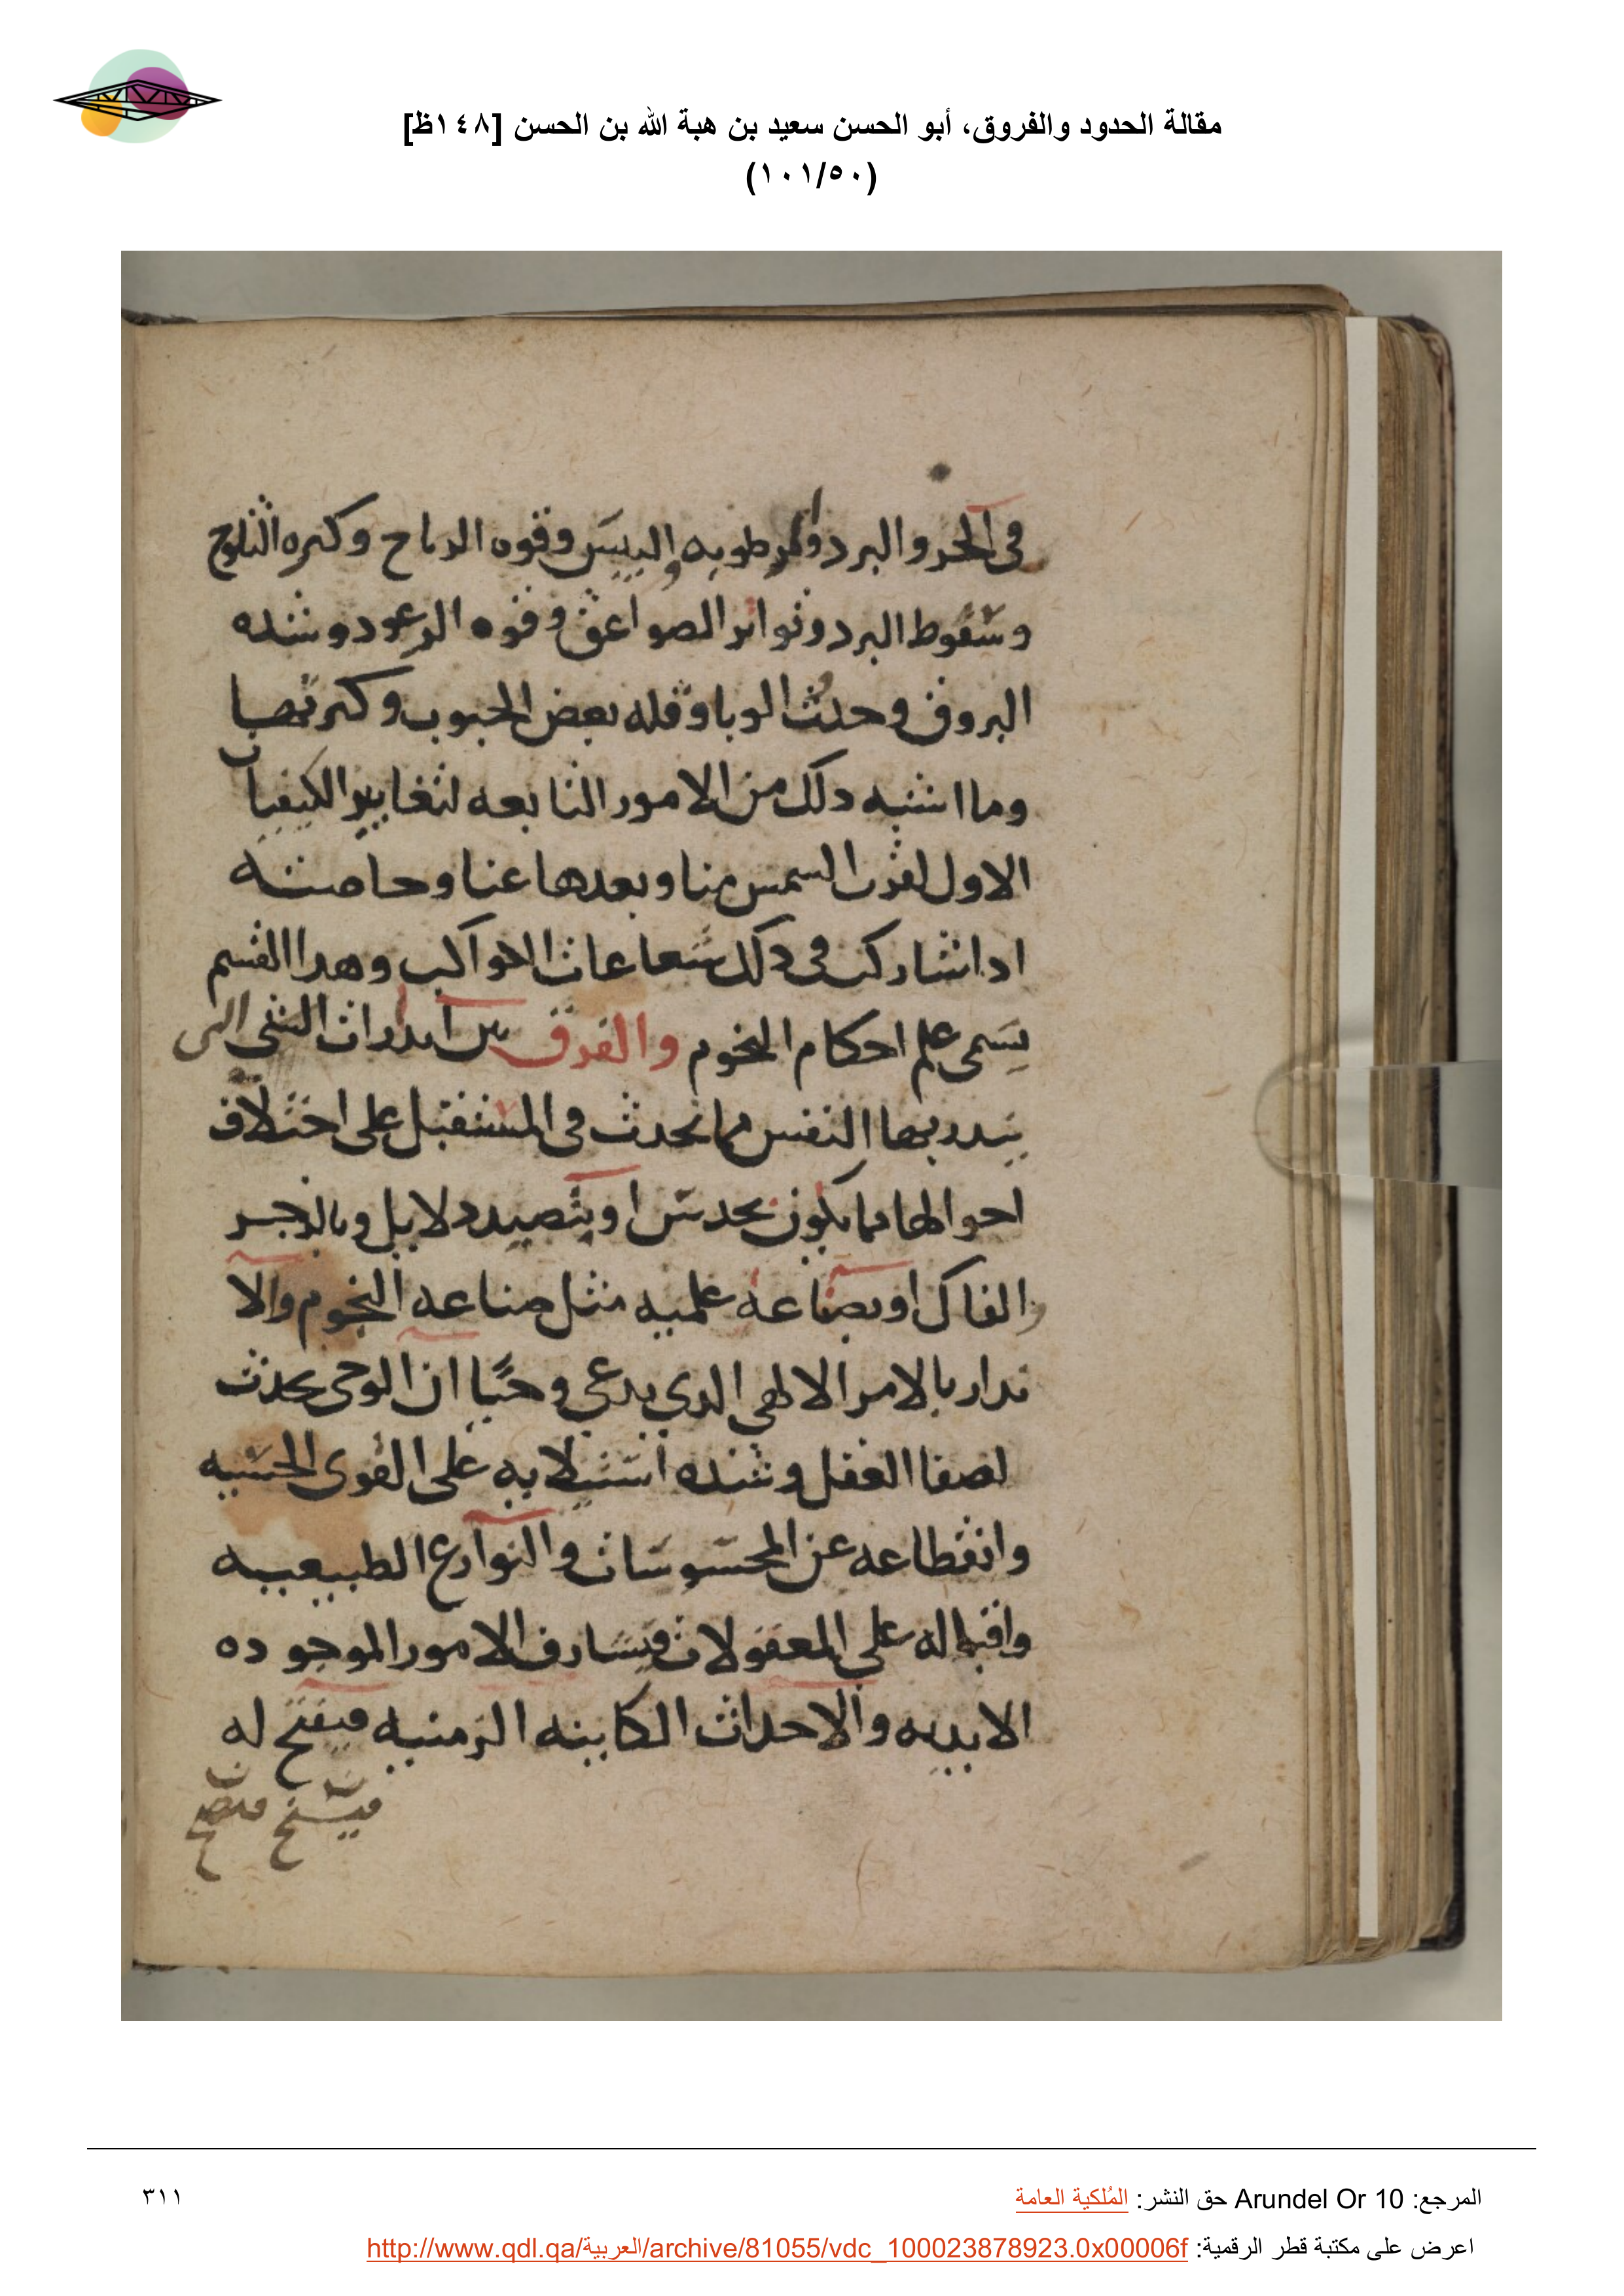 مقالة الحدود والفروق، أبو الحسن سعيد بن هبة الله بن الحسن [١٤٨ظ]
(١٠١/٥٠)
فى الحر والبرد والرطوبه واليبس وقوه الرياح وكثره الثلوج
وسقوط البرد وتواتر الصواعق وقوه الرعود وشده
البروق وحدث الوبا وقله بعض الحبوب وكثر بعضها
وما اشبه دلك من الامور التابعه لتغايير الكيفيات
الاول لقرب الشمس منا وبعدها عنا وخاصته
ادا شاركت فى دلك شعاعات الكواكب وهدا القسم
يسمى علم احكام النجوم والفرق بين اندارات الشى التى
يندر بها النفس مما يحدث فى المستقبل على اختلاف
احوالها مما يكون بحدس او بتصيد دلايل وبالزجر
والفال او بصناعه علميه مثل صناعه النجوم والا
ندار بالامر الالهى الدي يدعى وحيًا ان الوحى يحدث
لصفا العقل وشده استيلايه على القوى الحسيه
وانقطاعه عن المحسوسات والنوازع الطبيعيه
واقباله على المعقولات فيشارف الامور الموجوده
الابديه والاحداث الكاينه الزمنيه فيفتح له
المرجع: Arundel Or 10 حق النشر: المُلكية العامة
٣١١
اعرض على مكتبة قطر الرقمية: http://www.qdl.qa/العربية/archive/81055/vdc_100023878923.0x00006f